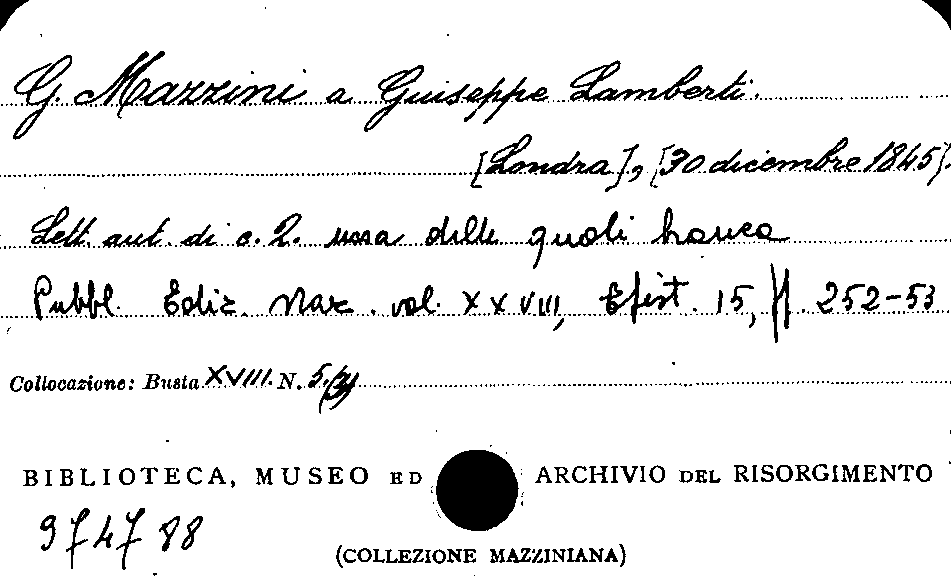 G. Mazzini a Guiseppe Lamberti.
[Londra], [30 dicembre 1845].
Lett. aut. di c. 2. una delle quali bianca
Pubbl. Ediz. Naz. vol. XXVIII, Epist. 15, pp. 252-53
Collocazione: Busta XVIII. N. 5.
BIBLIOTECA, MUSEO ED ARCHIVIO DEL RISORGIMENTO
974788
(COLLEZIONE MAZZINIANA)